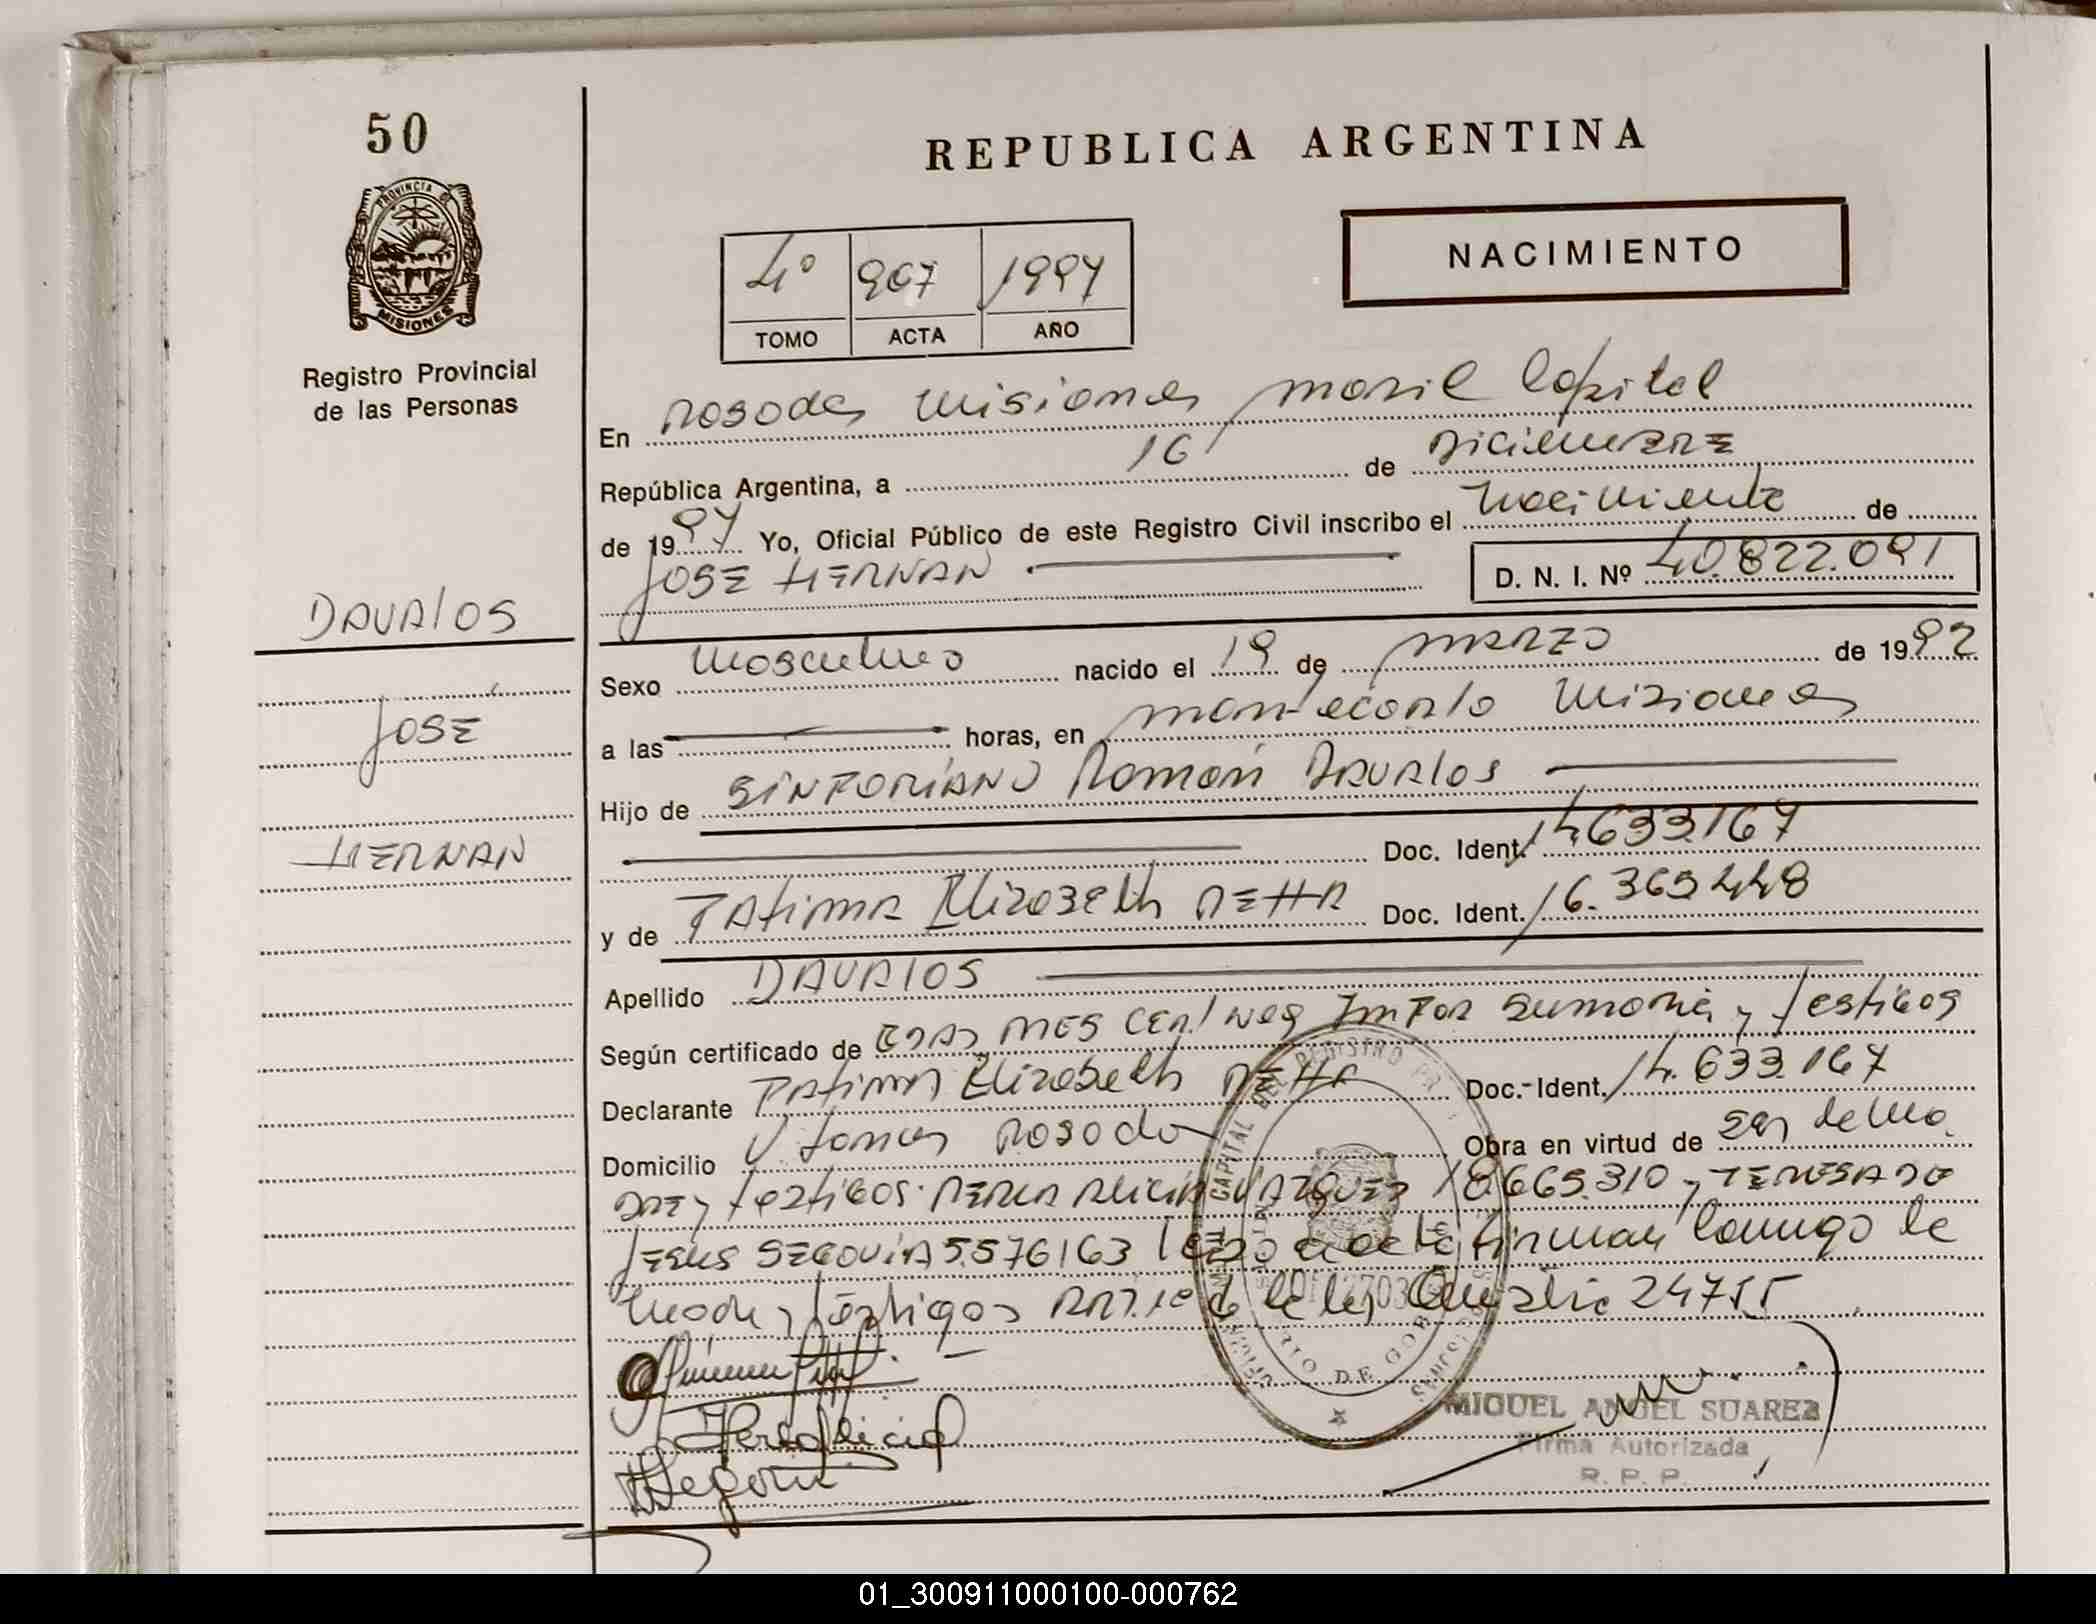 50
REPUBLICA ARGENTINA
PROVINCIA DE
MISIONES
Registro Provincial
de las Personas
4º 907 1997
TOMO ACTA AÑO
NACIMIENTO
En Posadas Misiones Movil Capital
República Argentina, a 16 de Diciembre
de 1997 Yo, Oficial Público de este Registro Civil inscribo el Nacimiento de
JOSE HERNAN D. N. I. Nº 40.822.091
DAVALOS
JOSE
HERNAN
Sexo Masculino nacido el 19 de MARZO de 1992
a las horas, en Montecarlo Misiones
Hijo de SINFORIANO Ramon DAVALOS
Doc. Ident. 14.633.167
y de FATIMA Elizabeth Doc. Ident. 16.365.448
Apellido DAVALOS
Según certificado de MES Cert Neg Infor Sumaria y testigos
Declarante FATIMA Elizabeth Doc.-Ident. 14.633.167
Domicilio Posadas Obra en virtud de ser de la Ma
DRE y testigos PERLA ALICIA VAZQUEZ 18.665.310 y TERESA DE
JESUS SEGOVIA 5.576163 firman Conmigo la
Madre y testigos de la ley 24755
MIGUEL ANGEL SUAREZ
Firma Autorizada
R. P. P.
01_300911000100-000762